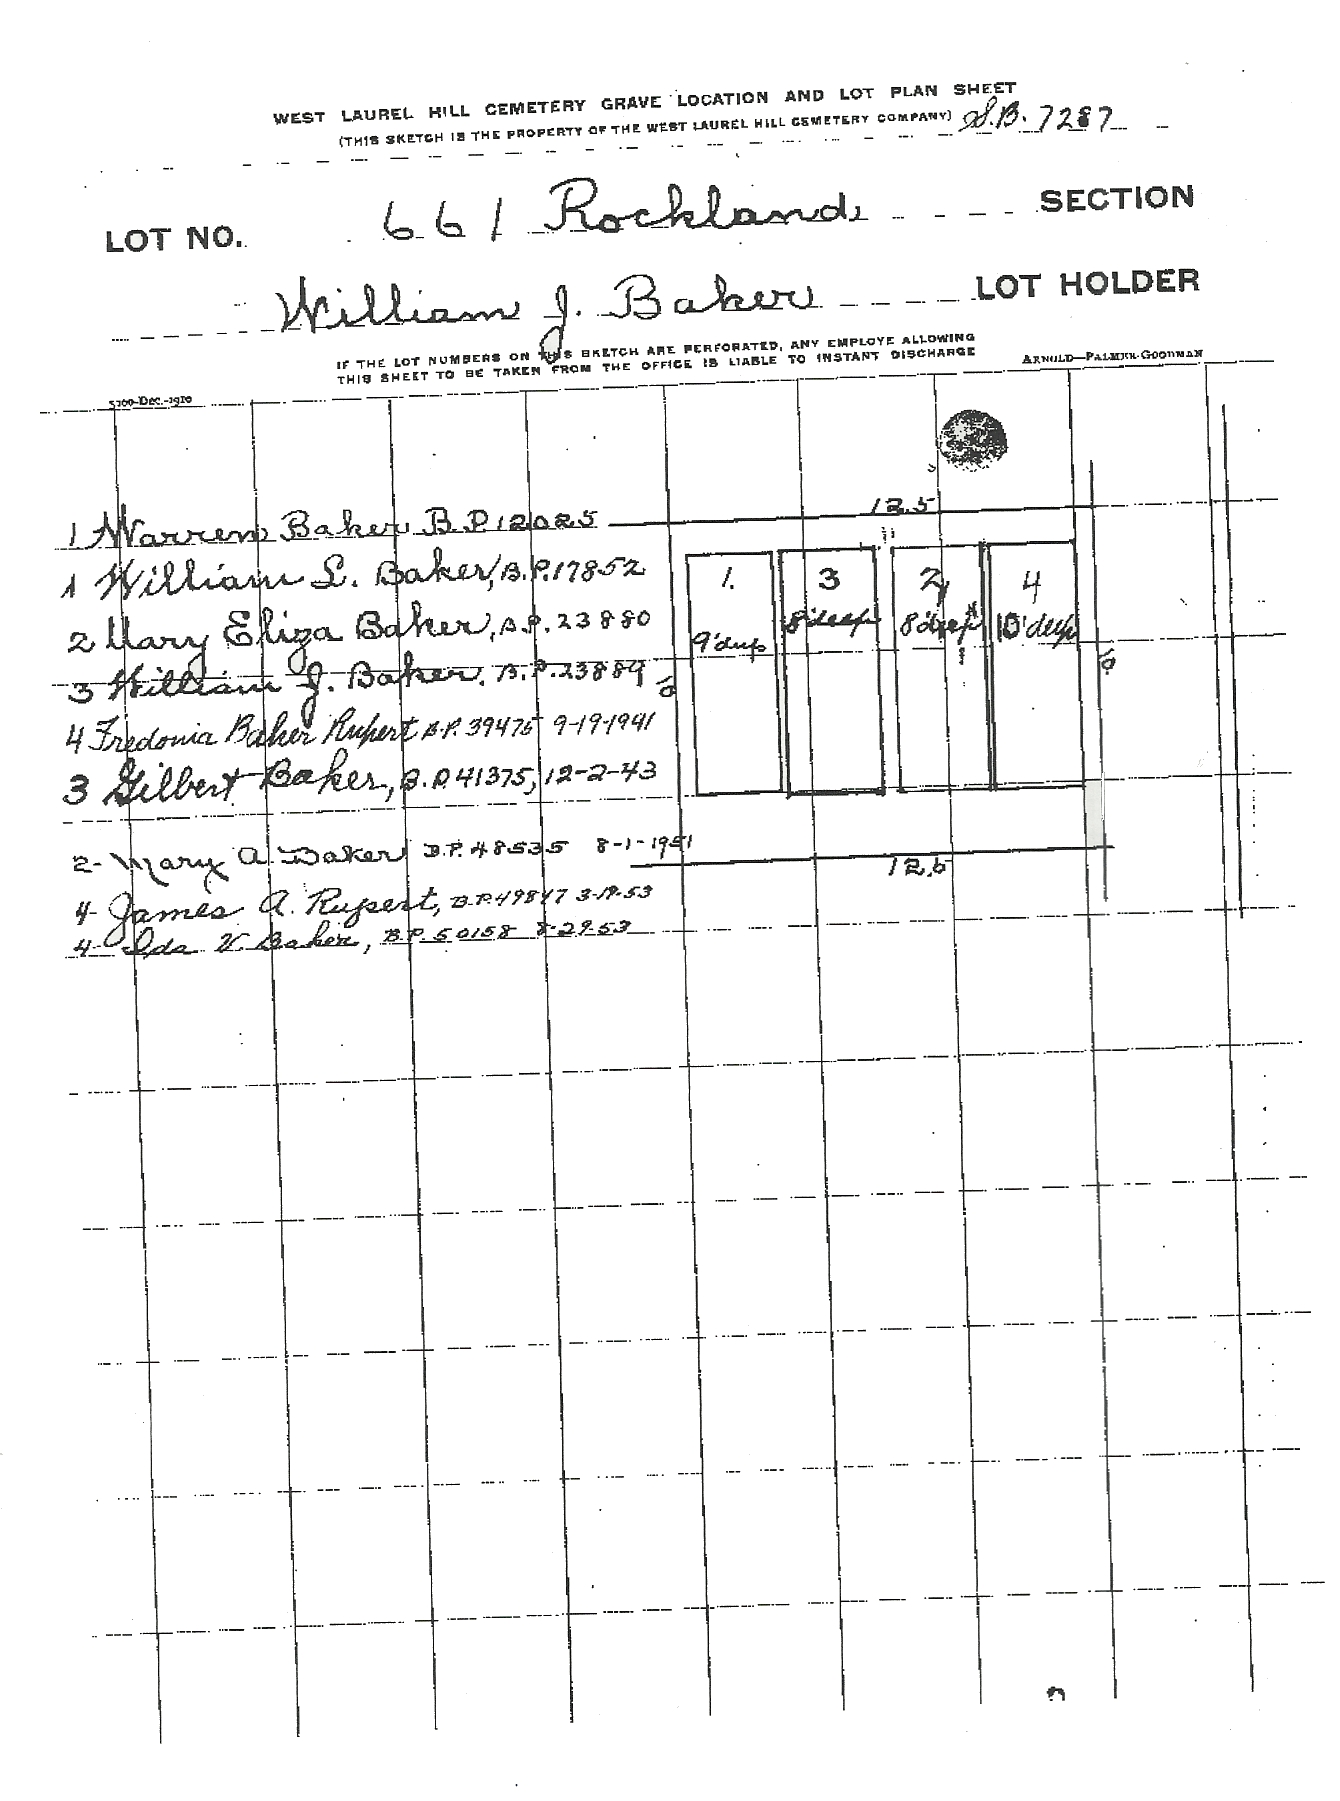 WEST LAUREL HILL CEMETERY GRAVE LOCATION AND LOT PLAN SHEET
(THIS SKETCH IS THE PROPERTY OF THE WEST LAUREL HILL CEMETERY COMPANY) S.B. 7287
LOT NO. 661 Rockland SECTION
William J. Baker LOT HOLDER
IF THE LOT NUMBERS ON THIS SKETCH ARE PERFORATED, ANY EMPLOYE ALLOWING
THIS SHEET TO BE TAKEN FROM THE OFFICE IS LIABLE TO INSTANT DISCHARGE
ARNOLD—PALMER-GOODMAN
-Dec.-1910
12.5
1 Warren Baker B.P. 12025
1 William L. Baker, B.P. 17852
2 Mary Eliza Baker, B.P. 23880
3 William J. Baker, B.P. 23889
4 Fredonia Baker Rupert B.P. 39475 9-19-1941
3 Gilbert Baker, B.P. 41375, 12-2-43
2- Mary A Baker B.P. 48535 8-1-1951
4- James A. Rupert, B.P. 49847 3-19-53
4- Ida V. Baker, B.P. 50158 8-29-53
1. 3 2 4
9'deep 8'deep 8'deep 10'deep
12.5